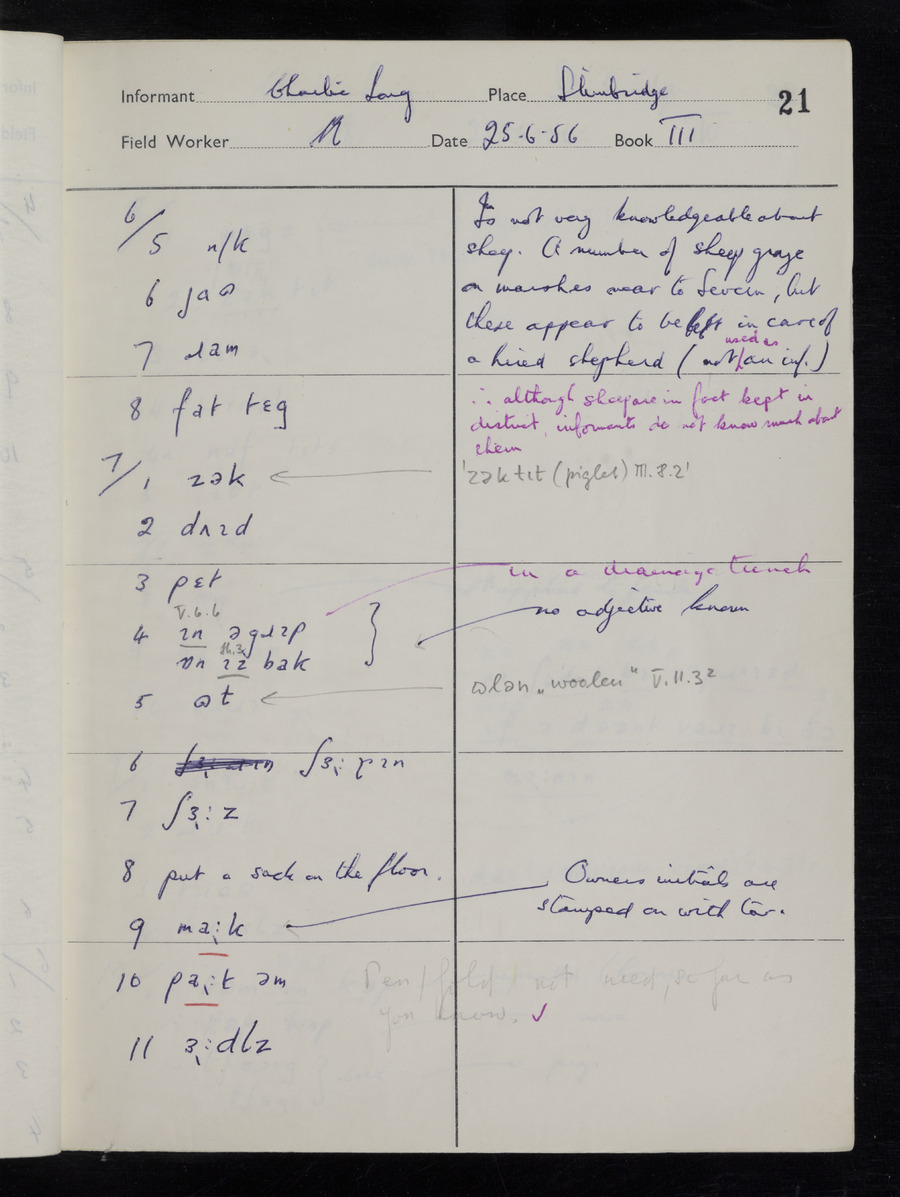 Informant Charlie Long Place Slimbridge 21
Field Worker Date 25-6-56 Book III
6/
5 n/k
6 jaɷ
7 ɹam
8 fat tɛg
7/
1 zək
2 dʌɪd
3 pɛt
V.6.6
4 ɪn əgɹɪp
ɒn ɪz bak
5 ɷt
6 ʃɜ:ɻɪn
7 ʃɜ:z
8 put a sack on the floor.
9 ma:k
10 pa:t əm
11 ɜ:dlz
Is not very knowledgeable about
sheep. A number of sheep graze
on marshes near to Severn, but
these appear to be left in care of
used as
a hired shepherd (not/an inf.)
∴ although sheep are in fact kept in
district, informants do not know much about
them
'zək tɪt (piglet) III.8.2'
in a drainage trench
no adjective known
ɷlən „woolen" V.11.3²
Owners initials are
stamped on with tar.
Pen/fold not need, so far as
you know. ✓